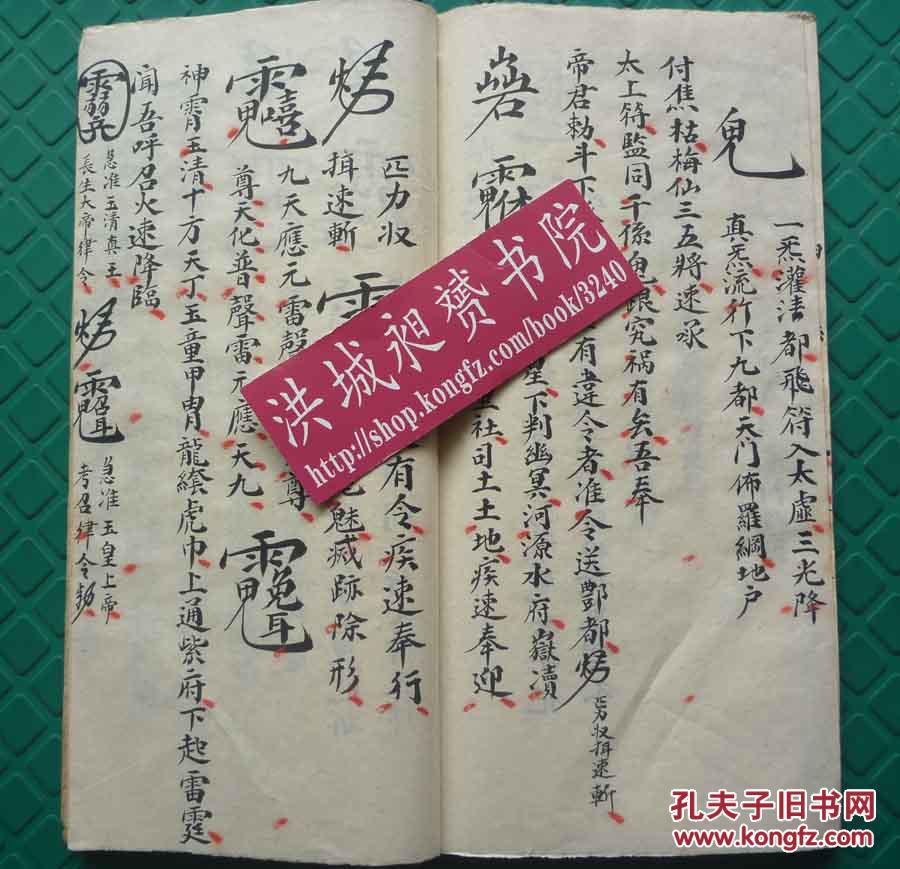 一炁灌注都飛符入太虛三光降
真炁流行下九都天門佈羅綱地戶
付焦枯梅仙三五將速承
太上符監同千孫鬼眼究禍有矣吾奉
帝君勅斗下
有違令者准令送酆都
匹力収揖速斬
星下判幽冥河源水府嶽瀆
社司土土地疾速奉迎
有令疾速奉行
魅滅跡除形
匹力収
揖速斬
九天應元雷聲
尊
尊天化普聲雷元應天九
神霄玉清十方天丁玉童甲冑龍縧虎巾上通紫府下起雷霆
聞吾呼召火速降臨
急准玉清真王
長生大帝律令
急准玉皇上帝
考召律令勅
洪城昶赟书院
http://shop.kongfz.com/book/3240
孔夫子旧书网
www.kongfz.com